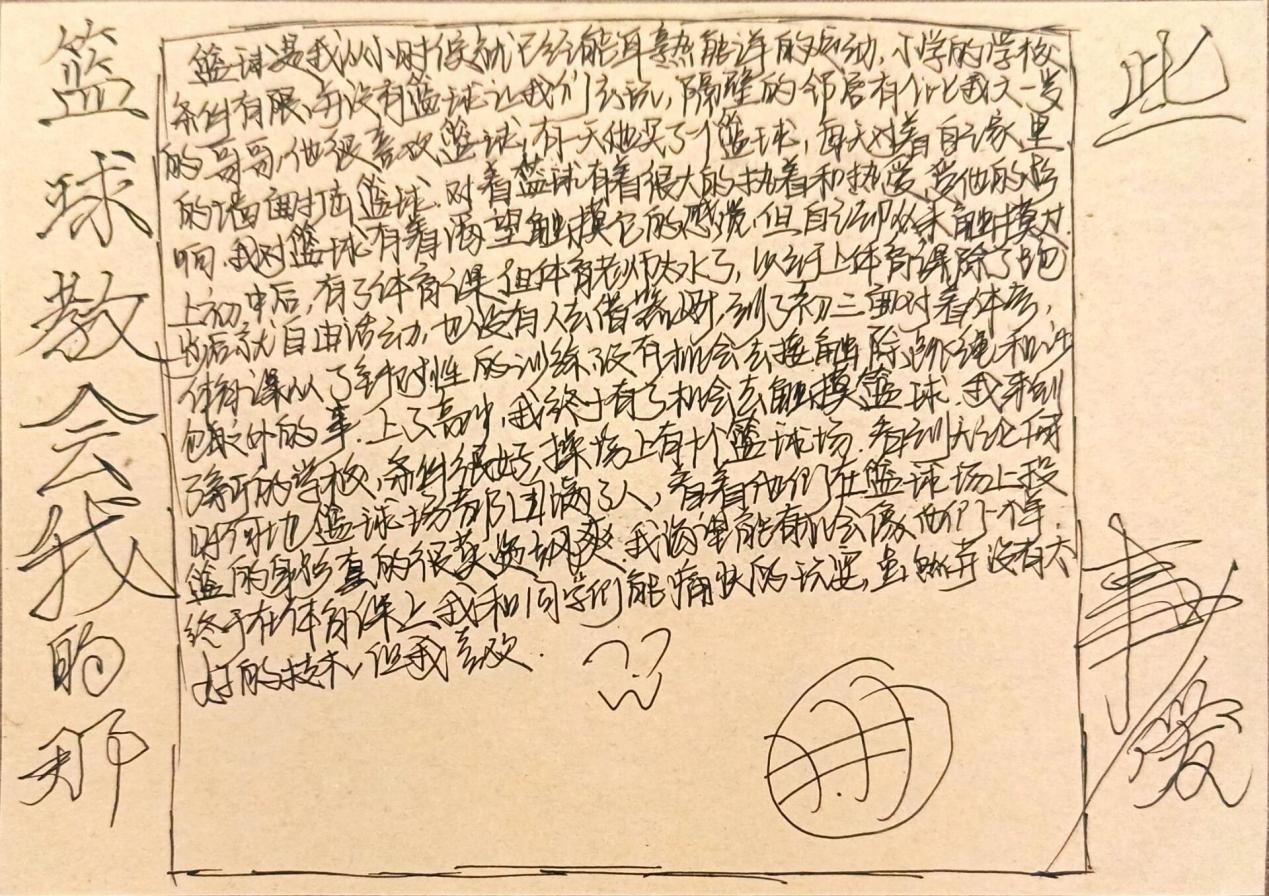 篮球教会我的那
些
事
爱
篮球是我从小时候就已经能耳熟能详的运动，小学的学校
条件有限，并没有篮球让我们去玩，隔壁的邻居有个比我大一岁
的哥哥，他很喜欢篮球，有一天他买了个篮球，每天对着自己家里
的墙面打篮球。对着篮球有着很大的执着和热爱，受他的影
响，我对篮球有着渴望触摸它的感觉，但自己却从未触摸过。
上初中后，有了体育课，但体育老师太水了，以至于上体育课除了跑
步后就自由活动，也没有人去借器材，到了初三面对着体考，
体育课从了针对性的训练，没有机会去接触除跳绳和沙
包以外的事。上了高中，我终于有了机会去触摸篮球。我来到
了新的学校，条件很好，操场上有十个篮球场。看到无论何
时何地篮球场都围满了人，看着他们在篮球场上投
篮的身影真的很英姿飒爽。我海里能有机会像他们一样。
终于在体育课上我和同学们能痛快的玩耍，虽然并没有太
好的技术，但我喜欢。